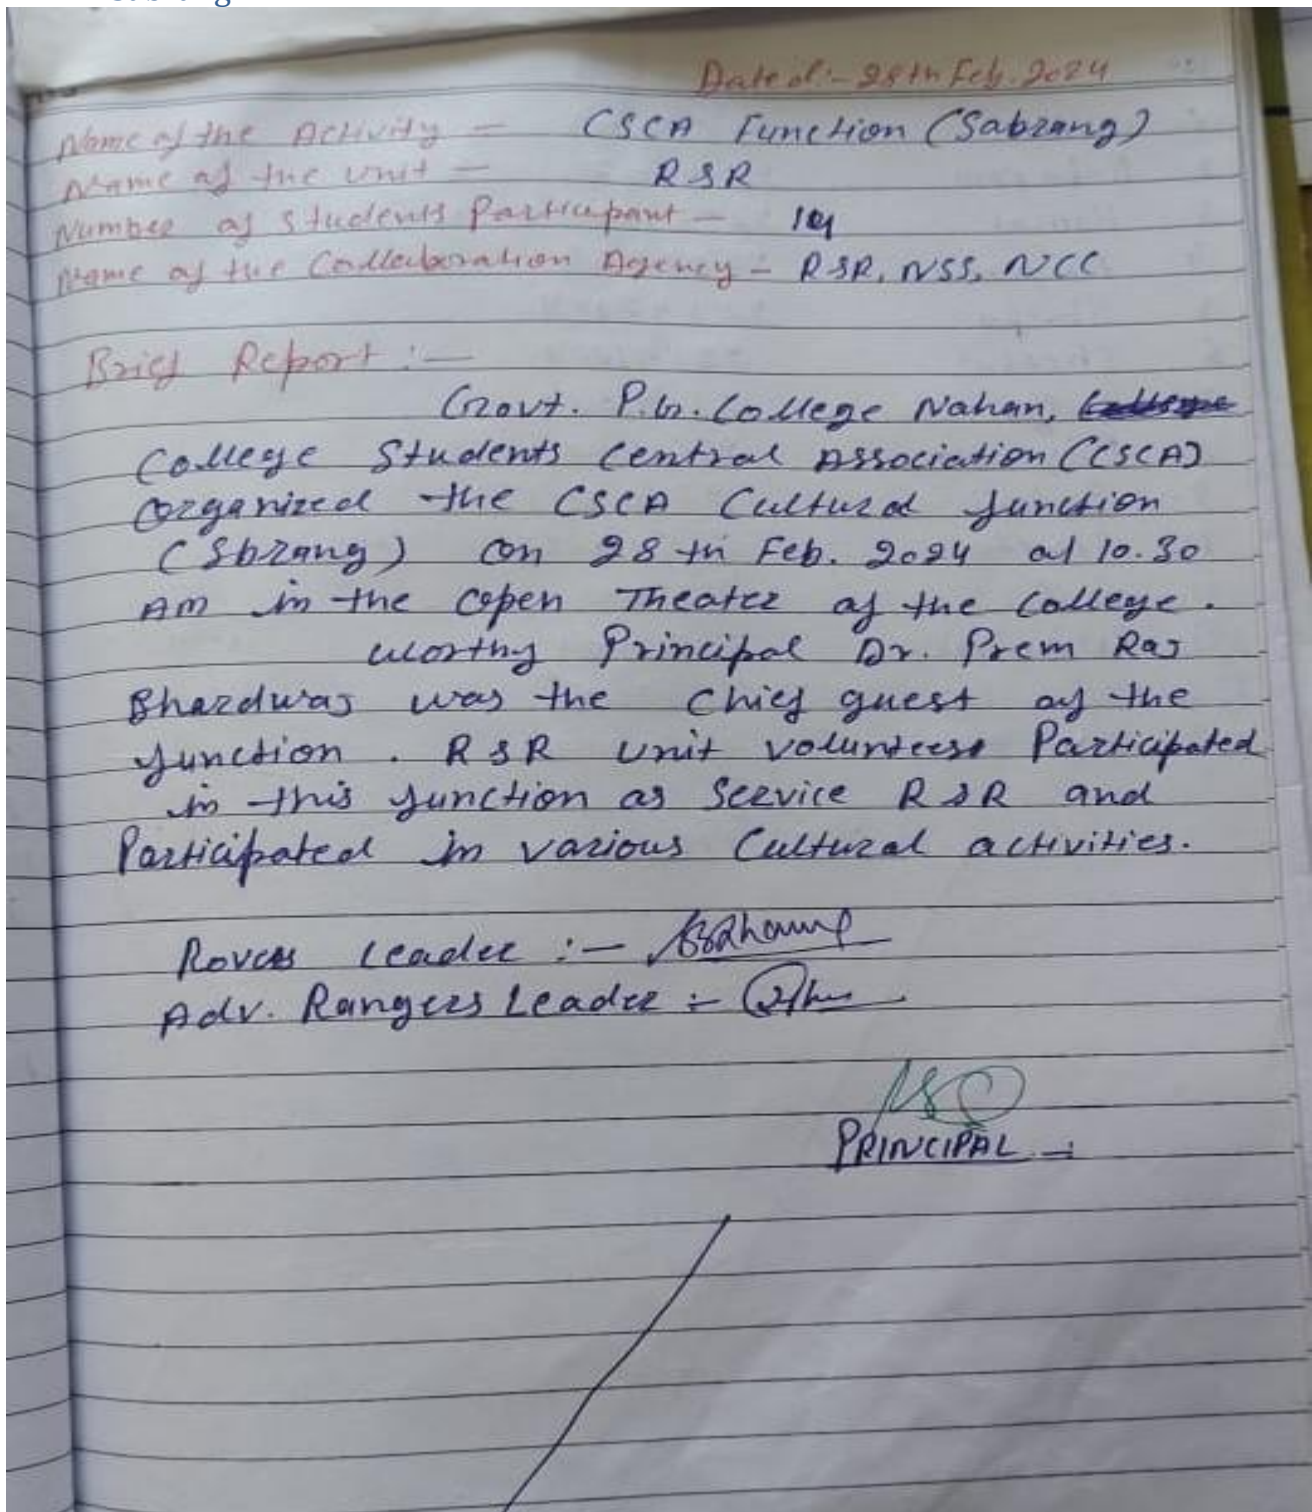 Dated:- 28th Feb. 2024
Name of the Activity - CSCA Function (Sabrang)
Name of the Unit - R&R
Number of Students Participant -
Name of the Collaboration Agency - R&R, NSS, NCC
Brief Report :-
Govt. P.G. College Nahan,
College Students Central Association (CSCA)
organized the CSCA Cultural function
(Sbrang) on 28th Feb. 2024 at 10.30
AM in the open Theater of the College.
worthy Principal Dr. Prem Raj
Bhardwaj was the Chief guest of the
function. R&R unit volunteers Participated
in this function as Service R&R and
Participated in various Cultural activities.
Rovers Leader :-
Adv. Rangers Leader :-
PRINCIPAL